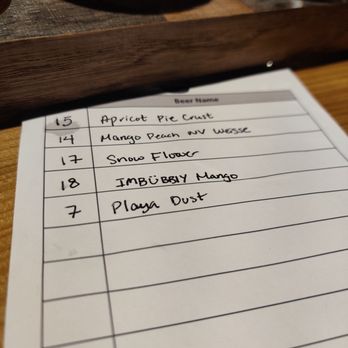 Beer Name
15 Apricot Pie Crust
14 Mango Peach NV Weisse
17 Snow Flower
18 IMBÜBBLY Mango
7 Playa Dust